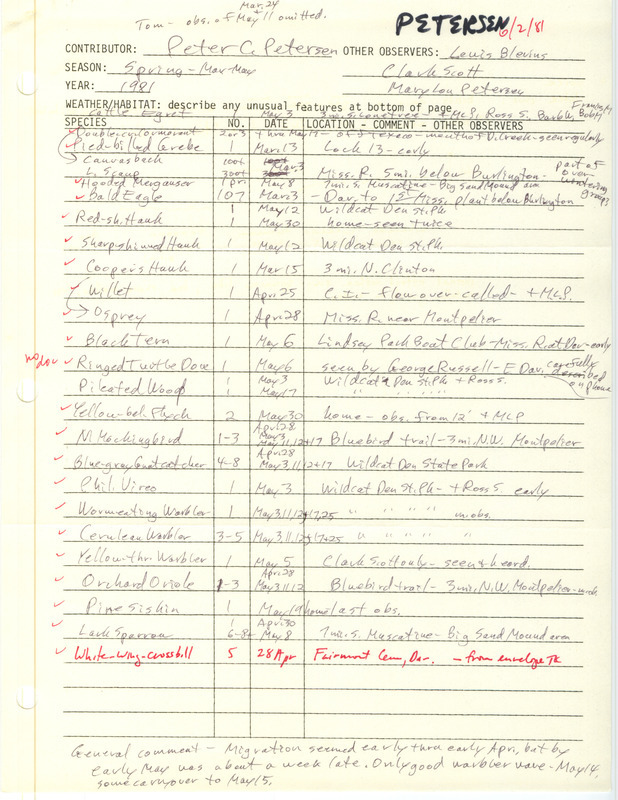 Mar. 24
Tom - obs. of May 11 omitted.
PETERSEN 6/2/81
CONTRIBUTOR: Peter C. Petersen OTHER OBSERVERS: Lewis Blevins
SEASON: Spring - Mar-May Clark Scott
YEAR: 1981 Marylou Petersen
WEATHER/HABITAT: describe any unusual features at bottom of page
Cattle Egret May 3 3 mi. S. Lonetree - + MLP, Ross S. Barble,
SPECIES NO. DATE LOCATION - COMMENT - OTHER OBSERVERS
Double-cr. cormorant 2 or 3 thru May 17 - mouth of D. Creek - seen regularly
Pied-billed Grebe 1 Mar. 13 Lock 13 - early
Canvasback 100+ Mar. 3
L. Scaup 300+ Miss. R. 5 mi. below Burlington - part of over wintering group?
Hooded Merganser 1 pr. May 8 7 mi. S. Muscatine - Big Sand Mound area
Bald Eagle 107 Mar. 3 - Dav. to Miss. plant below Burlington
1 May 12 Wildcat Den St. Pk.
Red-sh. Hawk 1 May 30 home - seen twice
Sharp-shinned Hawk 1 May 12 Wildcat Den St. Pk.
Coopers Hawk 1 Mar 15 3 mi. N. Clinton
Willet 1 Apr. 25 C. I. - flow over - called - + MLP.
Osprey 1 Apr. 28 Miss. R. near Montpelier
Black Tern 1 May 6 Lindsay Park Boat Club - Miss. R. at Dav - early
no doc Ringed Turtle Dove 1 May 6 seen by George Russell - E. Dav. carefully described on phone
Pileated Wood 1 May 3 Wildcat Den St. Pk + Ross S.
1 May 17 " " " "
Yellow-bel. Flych 2 May 30 home - obs. from 12' + MLP
Apr. 28
N. Mockingbird 1-3 May 3, 11, 12 + 17 Bluebird trail - 3 mi. N.W. Montpelier
Apr. 28
Blue-gray Gnatcatcher 4-8 May 3, 11, 12 + 17 Wildcat Den State Park
Phil. Vireo 1 May 3 Wildcat Den St. Pk - + Ross S. early
Wormeating Warbler 1 May 3, 11, 12 + 17, 25 " " " " m. obs.
Cerulean Warbler 3-5 May 3, 11, 12 + 17, 25 " " " "
Yellow-thr. Warbler 1 May 5 Clark Scott only - seen & heard.
Apr. 28
Orchard Oriole 1-3 May 3, 11, 12 Bluebird trail - 3 mi. N.W. Montpelier - m. ob
Pine Siskin 1 May 19 home last obs.
1 Apr. 30
Lark Sparrow 6-8+ May 8 7 mi. S. Muscatine - Big Sand Mound area
White-wing-crossbill 5 28 Apr Fairmont Cem, Dav. - from envelope TK
General comment - Migration seemed early thru early Apr., but by
early May was about a week late. Only good warbler wave - May 14,
some carryover to May 15.